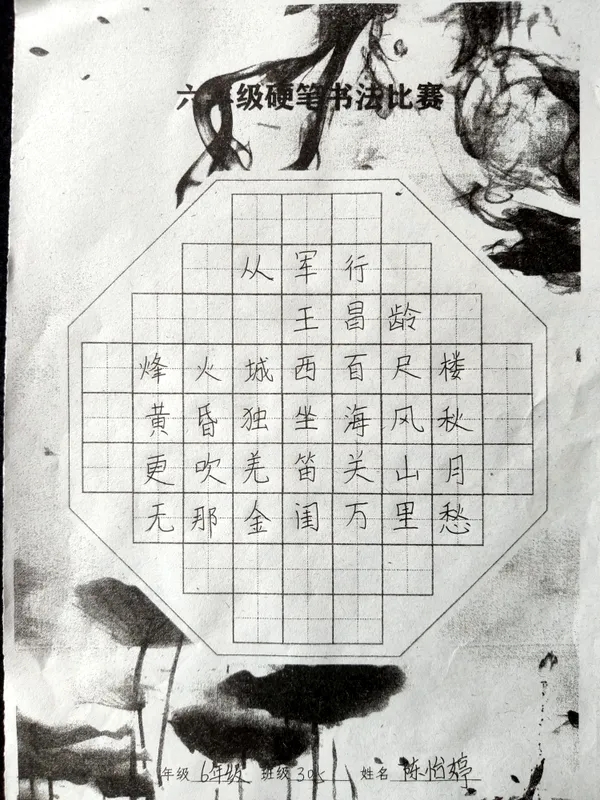 六年级硬笔书法比赛
从军行
王昌龄
烽火城西百尺楼
黄昏独坐海风秋
更吹羌笛关山月
无那金闺万里愁
年级 6年级 班级 30 姓名 陈怡婷